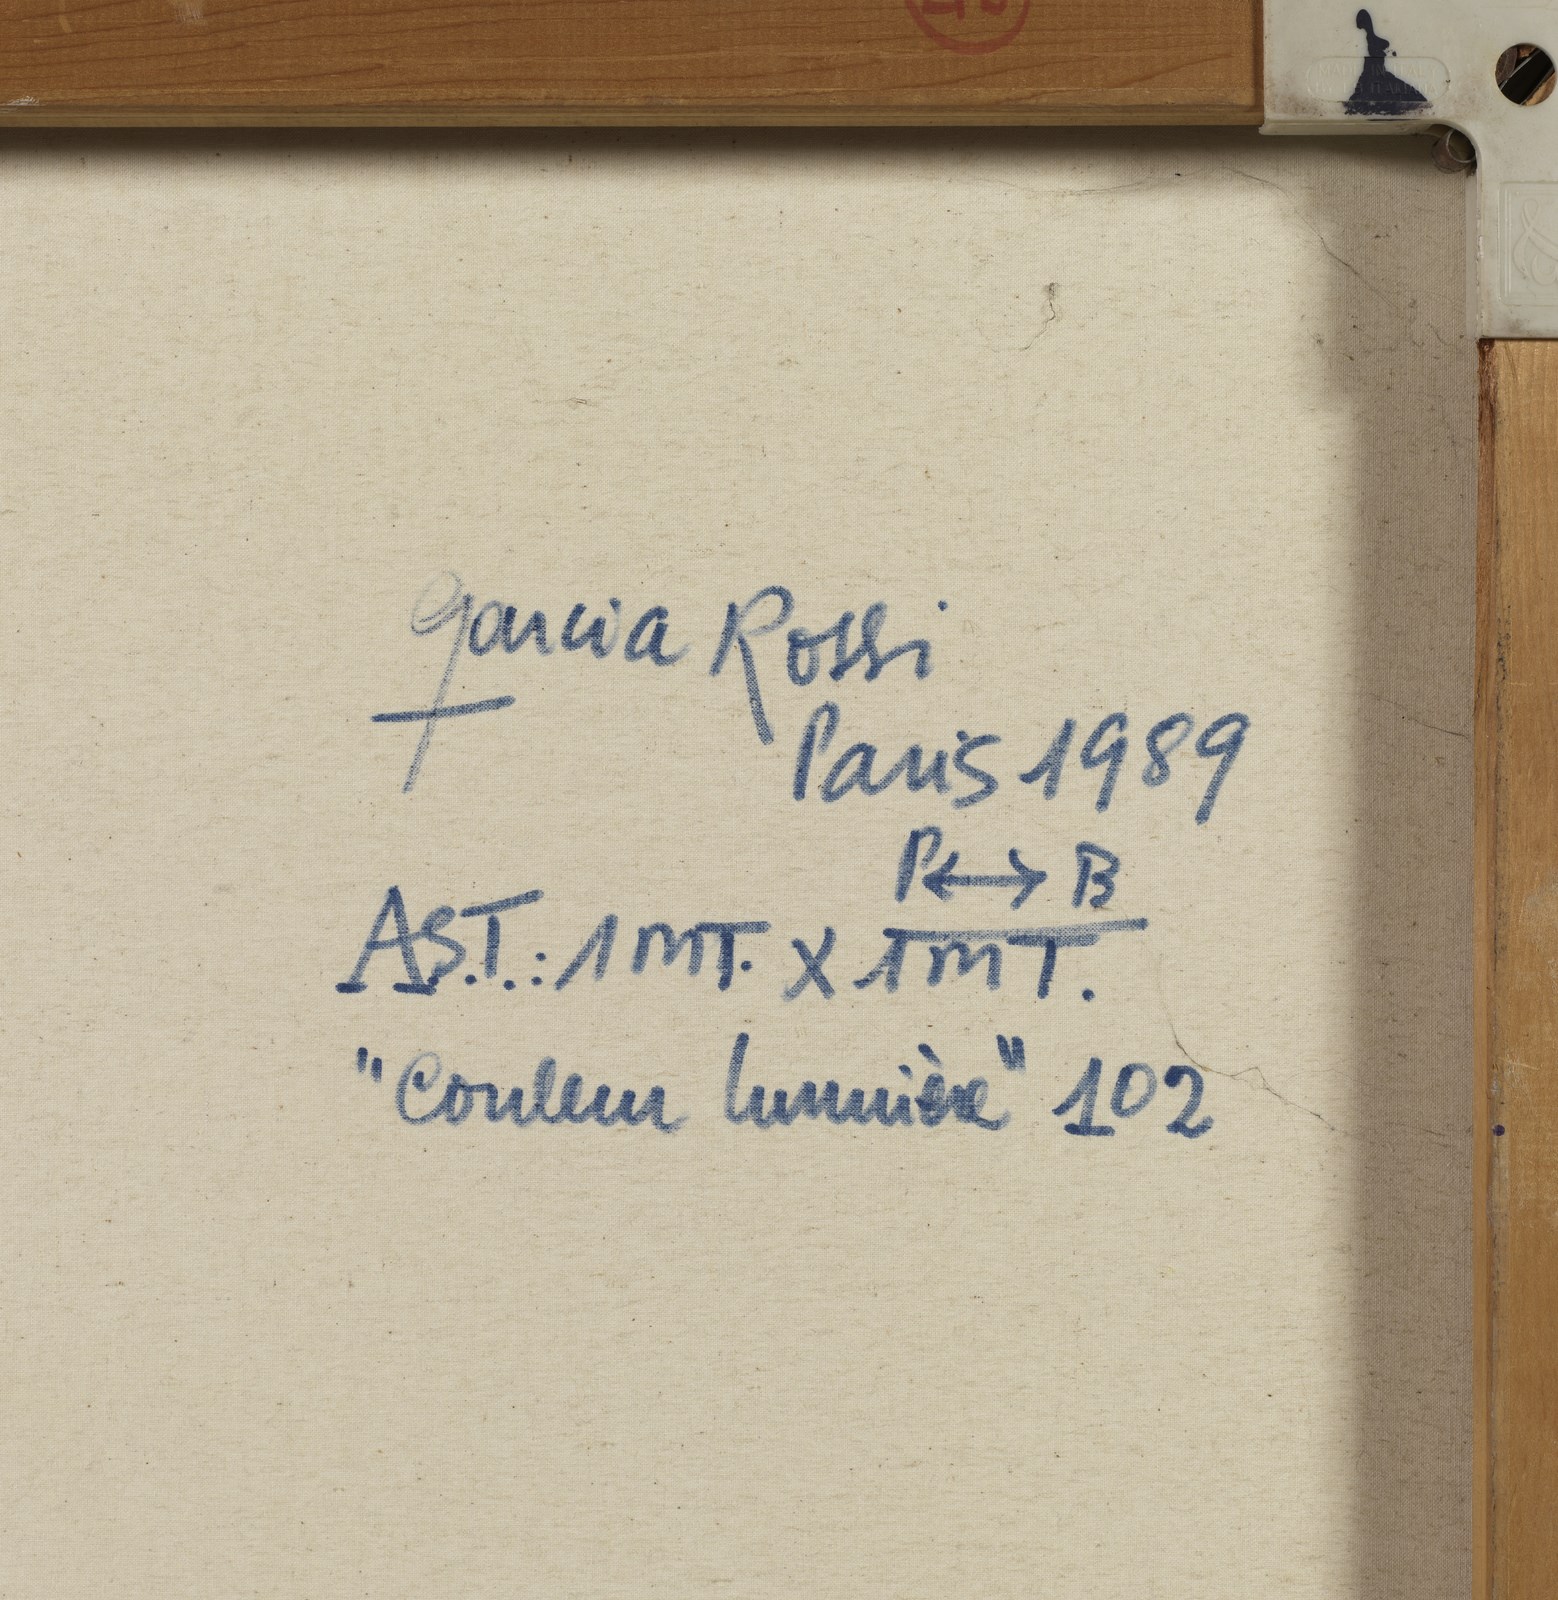 Garcia Rossi
Paris 1989
P ↔ B
A.S.T.: 1 MT. X 1 MT.
"Couleur lumière" 102